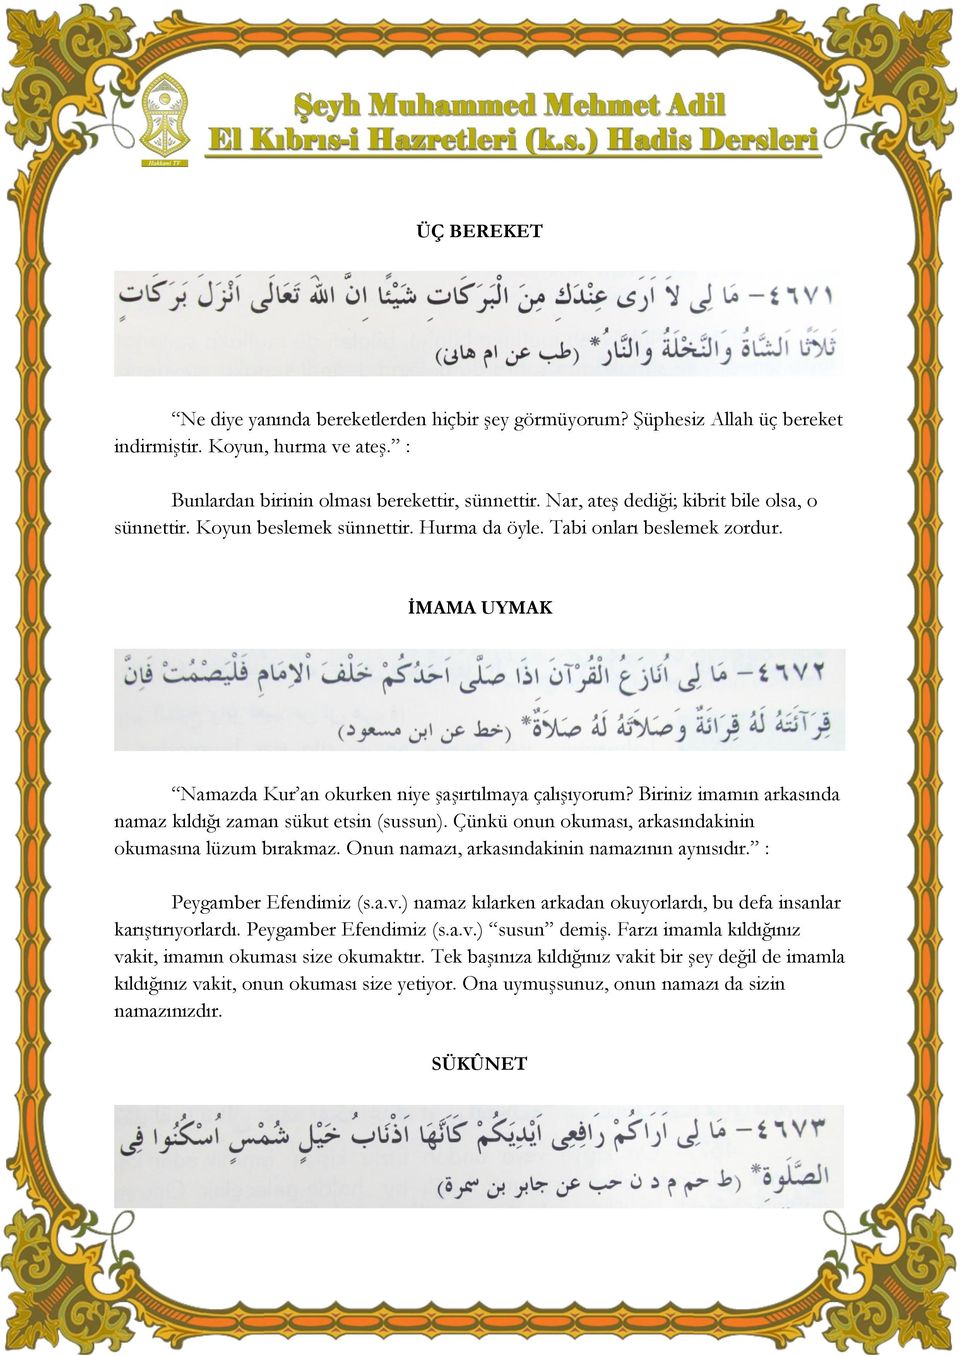 Şeyh Muhammed Mehmet Adil
El Kıbrıs-i Hazretleri (k.s.) Hadis Dersleri
Hakkani TV
ÜÇ BEREKET
٤٦٧١- مَا لِى لَا اَرَى عِنْدَكِ مِنَ الْبَرَكَاتِ شَيْئًا اِنَّ اللّٰهَ تَعَالَى اَنْزَلَ بَرَكَاتٍ
ثَلَاثًا اَلشَّاةُ وَالنَّخْلَةُ وَالنَّارُ* (طب عن ام هانئ)
“Ne diye yanında bereketlerden hiçbir şey görmüyorum? Şüphesiz Allah üç bereket
indirmiştir. Koyun, hurma ve ateş.” :
Bunlardan birinin olması berekettir, sünnettir. Nar, ateş dediği; kibrit bile olsa, o
sünnettir. Koyun beslemek sünnettir. Hurma da öyle. Tabi onları beslemek zordur.
İMAMA UYMAK
٤٦٧٢- مَا لِى اُنَازَعُ الْقُرْآنَ اِذَا صَلَّى اَحَدُكُمْ خَلْفَ الْاِمَامِ فَلْيَصْمُتْ فَاِنَّ
قِرَآئَتَهُ لَهُ قِرَائَةٌ وَصَلَاتَهُ لَهُ صَلَاةٌ* (خط عن ابن مسعود)
“Namazda Kur’an okurken niye şaşırtılmaya çalışıyorum? Biriniz imamın arkasında
namaz kıldığı zaman sükut etsin (sussun). Çünkü onun okuması, arkasındakinin
okumasına lüzum bırakmaz. Onun namazı, arkasındakinin namazının aynısıdır.” :
Peygamber Efendimiz (s.a.v.) namaz kılarken arkadan okuyorlardı, bu defa insanlar
karıştırıyorlardı. Peygamber Efendimiz (s.a.v.) “susun” demiş. Farzı imamla kıldığınız
vakit, imamın okuması size okumaktır. Tek başınıza kıldığınız vakit bir şey değil de imamla
kıldığınız vakit, onun okuması size yetiyor. Ona uymuşsunuz, onun namazı da sizin
namazınızdır.
SÜKÛNET
٤٦٧٣- مَا لِى اَرَاكُمْ رَافِعِى اَيْدِيكُمْ كَاَنَّهَا اَذْنَابُ خَيْلٍ شُمْسٍ اُسْكُنُوا فِى
الصَّلٰوةِ* (ط حم م د ن حب عن جابر بن سمرة)